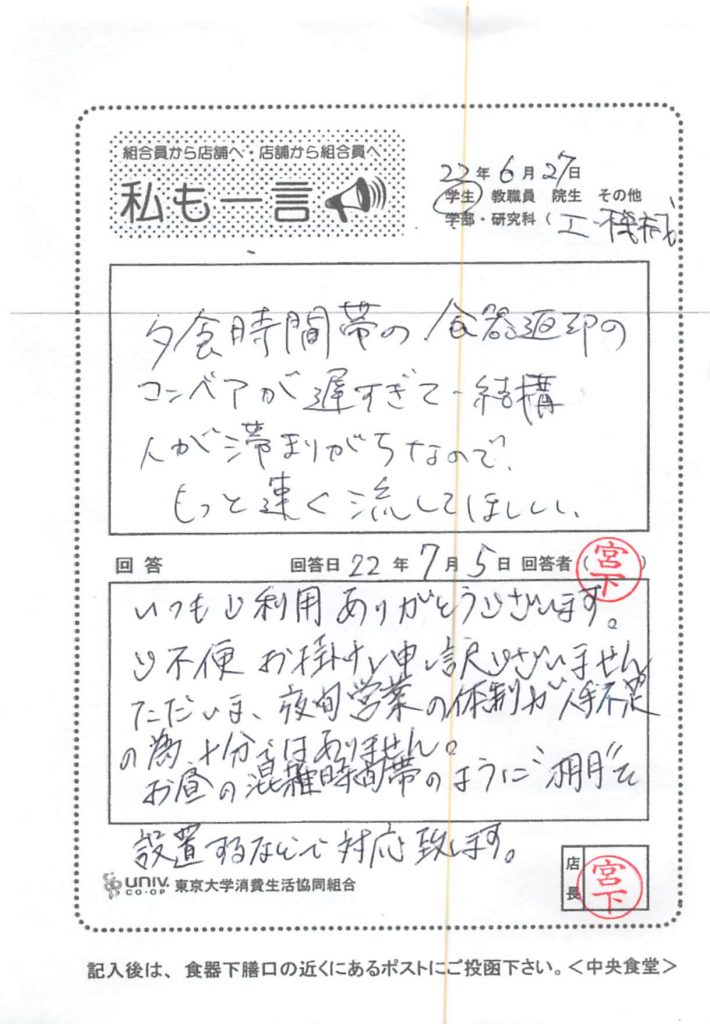 組合員から店舗へ・店舗から組合員へ
私も一言
22年6月27日
学生 教職員 院生 その他
学部・研究科 ( 工・機械
夕食時間帯の食器返却の
コンベアが遅すぎて、結構
人が滞まりがちなので、
もっと速く流してほしい。
回答 回答日 22年7月5日 回答者 (宮下)
いつもご利用ありがとうございます。
ご不便お掛けし申し訳ございません
ただいま、夜間営業の体制が人手不足
の為十分ではありません。
お昼の混雑時間帯のように"棚"を
設置するなどで対応致します。
店長 宮下
UNIV. CO-OP 東京大学消費生活協同組合
記入後は、食器下膳口の近くにあるポストにご投函下さい。<中央食堂>